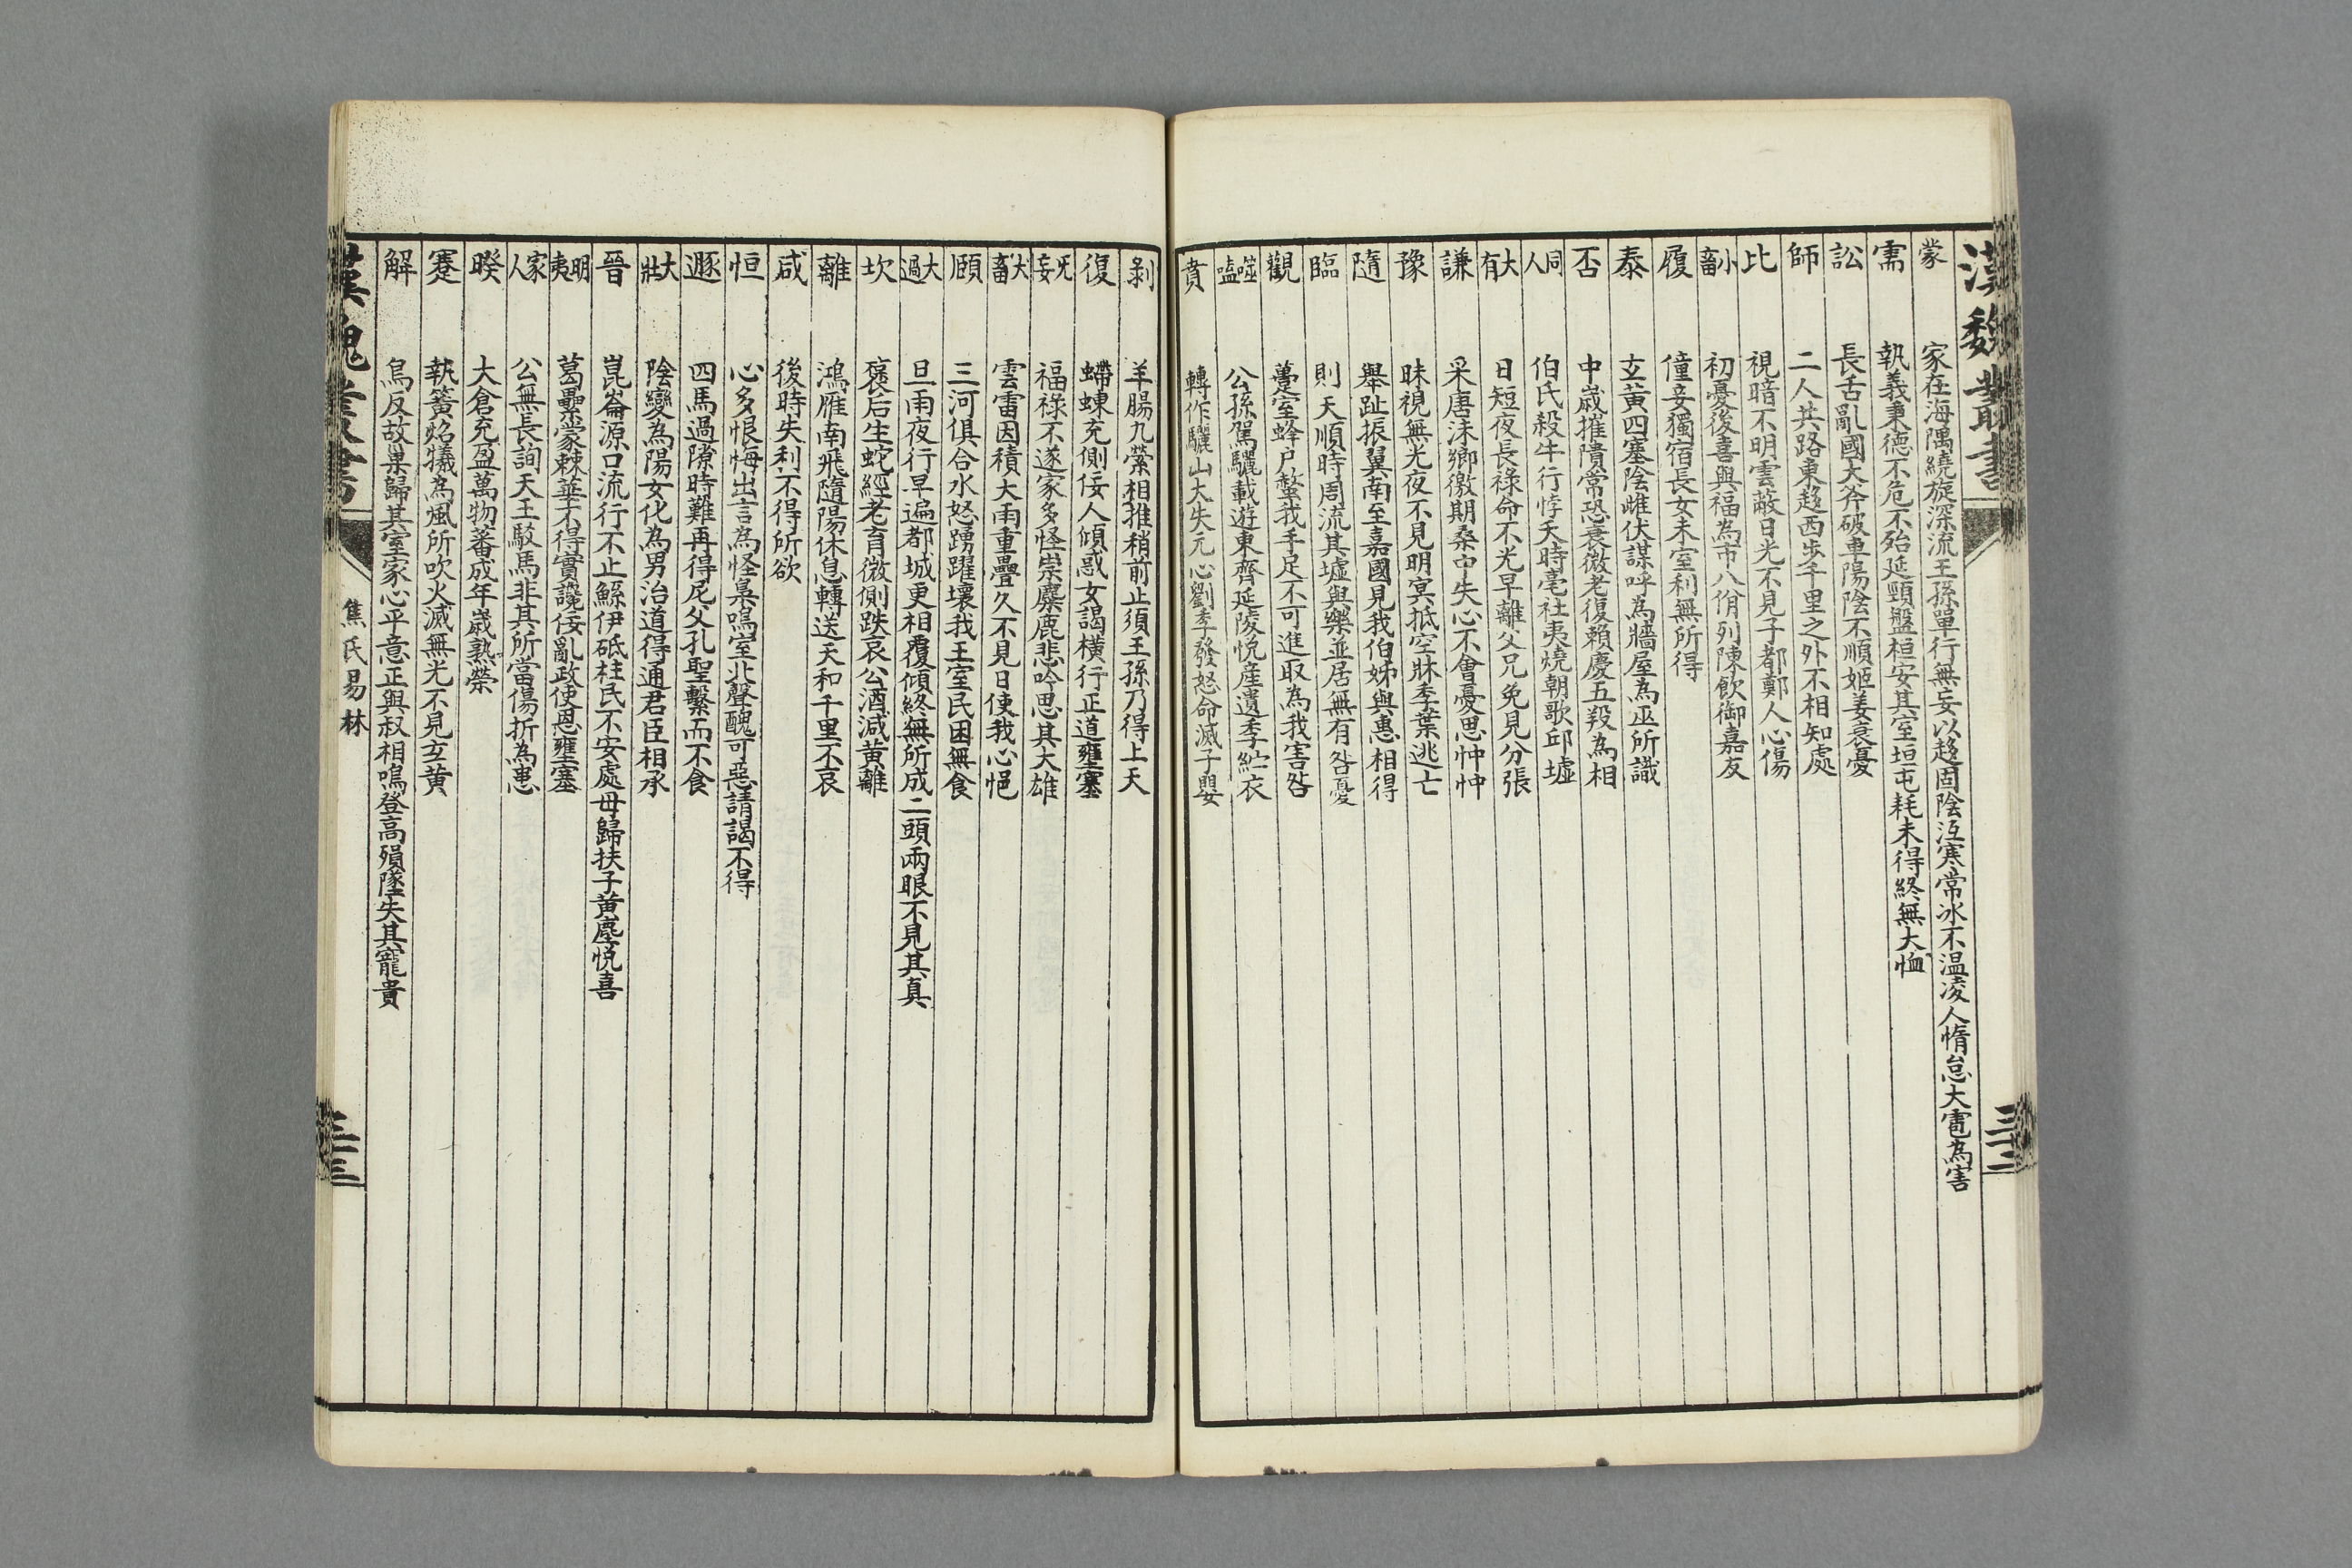 漢魏叢書
蒙 家在海隅繞旋深流王孫單行無妄以趍固陰沍寒常冰不温凌人惰怠大雹為害
需 執義秉德不危不殆延頸盤桓安其室垣屯耗未得終無大恤
訟 長舌亂國大斧破車陽陰不順姬姜衰憂
師 二人共路東趍西步千里之外不相知處
比 視暗不明雲蔽日光不見子都鄭人心傷
小畜 初憂後喜與福為市八佾列陳飲御嘉友
履 僮妾獨宿長女未室利無所得
泰 玄黃四塞陰雌伏謀呼為牆屋為巫所識
否 中歲摧隤常恐衰微老復賴慶五羖為相
同人 伯氏殺牛行悖天時亳社夷燒朝歌邱墟
大有 日短夜長祿命不光早離父兄免見分張
謙 采唐沬鄉徼期桑中失心不會憂思忡忡
豫 昧視無光夜不見明冥抵空牀季葉逃亡
隨 舉趾振翼南至嘉國見我伯姊與惠相得
臨 則天順時周流其墟與樂並居無有咎憂
觀 蠆室蜂户螫我手足不可進取為我害咎
噬嗑 公孫駕驪載遊東齊延陵悅産遺季紵衣
賁 轉作驪山大失元心劉季發怒命滅子嬰
剝 羊腸九縈相推稍前止須王孫乃得上天
復 蝃蝀充側佞人傾惑女謁横行正道壅塞
旡妄 福祿不遂家多怪祟麋鹿悲吟思其大雄
大畜 雲雷因積大雨重疊久不見日使我心悒
頤 三河俱合水怒踴躍壞我王室民困無食
大過 旦雨夜行早遍都城更相覆傾終無所成二頭兩眼不見其真
坎 褒后生蛇經老育微側跌哀公酒減黃離
離 鴻雁南飛隨陽休息轉送天和千里不哀
咸 後時失利不得所欲
恒 心多恨悔出言為怪梟鳴室北聲醜可惡請謁不得
遯 四馬過隙時難再得尼父孔聖繫而不食
大壯 陰變為陽女化為男治道得通君臣相承
晉 崑崙源口流行不止龢伊砥柱民不安處母歸扶子黃麈悅喜
明夷 葛藟蒙棘華不得實讒佞亂政使恩壅塞
家人 公無長詢天王駁馬非其所當傷折為患
睽 大倉充盈萬物蕃成年歲熟榮
蹇 執簧炤犧為風所吹火滅無光不見玄黃
解 鳥反故巢歸其室家心平意正與叔相鳴登高殞墜失其寵貴
漢魏叢書 焦氏易林 三三